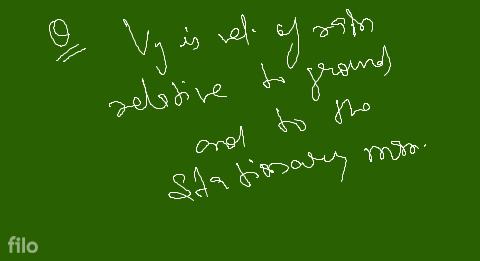 Q Vy is vel. of rain
relative to ground
and to the
stationary man.
filo